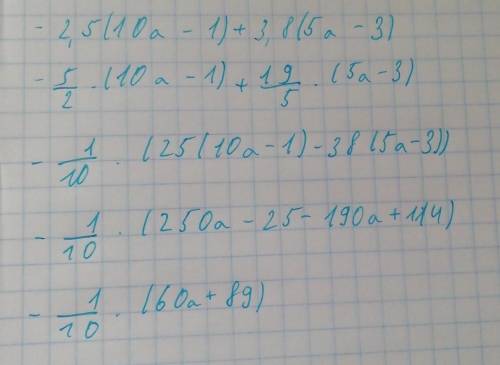 - 2,5(10a - 1) + 3,8(5a - 3)
- 5/2 · (10a - 1) + 19/5 · (5a - 3)
- 1/10 · (25(10a - 1) - 38(5a - 3))
- 1/10 · (250a - 25 - 190a + 114)
- 1/10 · (60a + 89)